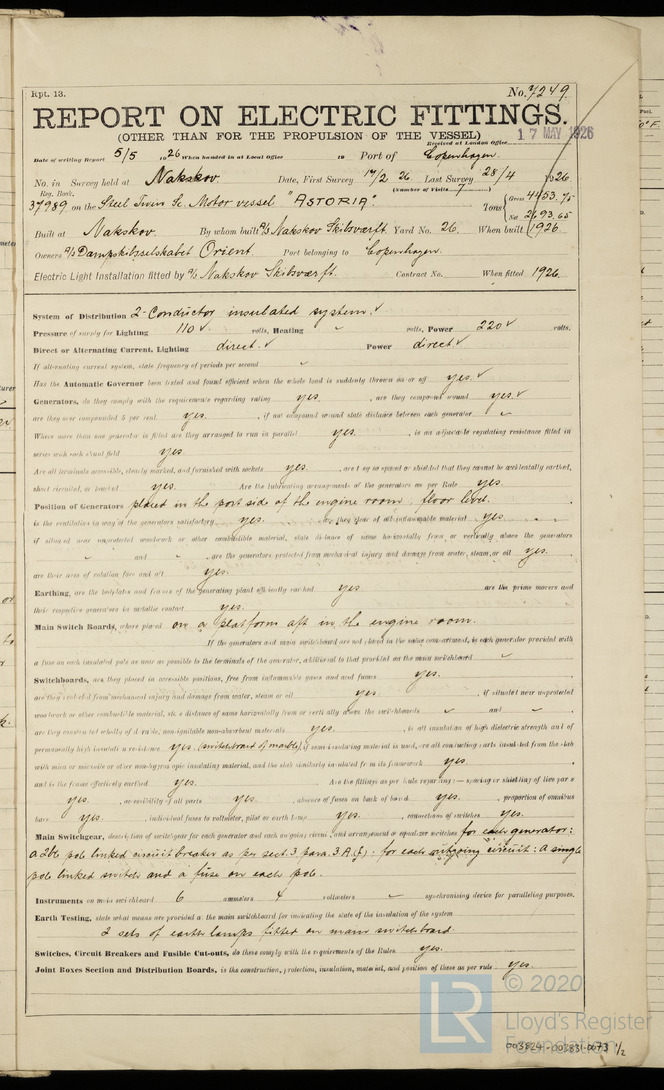 Rpt. 13.
No. 7249
REPORT ON ELECTRIC FITTINGS.
(OTHER THAN FOR THE PROPULSION OF THE VESSEL)
Received at London Office 17 MAY 1926
Date of writing Report 5/5 1926 When handed in at Local Office 19 Port of Copenhagen.
No. in Survey held at Nakskov. Date, First Survey 17/2 26 Last Survey 28/4 1926
Reg. Book. (Number of Visits 7)
37989 on the Steel Twin Sc. Motor vessel "ASTORIA" Tons Gross 4453.75
Net 2693.65
Built at Nakskov. By whom built A/S Nakskov Skibsværft. Yard No. 26. When built 1926.
Owners A/S Dampskibsselskabet Orient. Port belonging to Copenhagen.
Electric Light Installation fitted by A/S Nakskov Skibsværft. Contract No. When fitted 1926.
System of Distribution 2-Conductor insulated system. ✓
Pressure of supply for Lighting 110 ✓ volts, Heating volts, Power 220 ✓ volts.
Direct or Alternating Current, Lighting direct. ✓ Power direct ✓
If alternating current system, state frequency of periods per second
Has the Automatic Governor been tested and found efficient when the whole load is suddenly thrown on or off yes. ✓
Generators, do they comply with the requirements regarding rating yes. , are they compound wound yes. ✓
are they over compounded 5 per cent. yes. , if not compound wound state distance between each generator
Where more than one generator is fitted are they arranged to run in parallel yes. , is an adjustable regulating resistance fitted in
series with each shunt field yes.
Are all terminals accessible, clearly marked, and furnished with sockets yes. , are they so spaced or shielded that they cannot be accidentally earthed,
short circuited, or touched yes. Are the lubricating arrangements of the generators as per Rule yes.
Position of Generators placed in the port side of the engine room, floor level.
is the ventilation in way of the generators satisfactory yes. are they clear of all inflammable material yes.
if situated near unprotected woodwork or other combustible material, state distance of same horizontally from or vertically above the generators
and , are the generators protected from mechanical injury and damage from water, steam, or oil yes.
are their axes of rotation fore and aft yes.
Earthing, are the bedplates and frames of the generating plant efficiently earthed yes are the prime movers and
their respective generators in metallic contact yes.
Main Switch Boards, where placed on a platform aft in the engine room.
If the generators and main switchboard are not placed in the same compartment, is each generator provided with
a fuse on each insulated pole as near as possible to the terminals of the generator, additional to that provided on the main switchboard
Switchboards, are they placed in accessible positions, free from inflammable gases and acid fumes yes.
are they protected from mechanical injury and damage from water, steam or oil yes. , if situated near unprotected
woodwork or other combustible material, state distance of same horizontally from or vertically above the switchboards and
are they constructed wholly of durable, non-ignitable non-absorbent materials yes. , is all insulation of high dielectric strength and of
permanently high insulation resistance yes. (switchboard of marble) if semi-insulating material is used, are all conducting parts insulated from the slab
with mica or micanite or other non-hygroscopic insulating material, and the slab similarly insulated from its framework yes.
and is the frame effectively earthed yes. Are the fittings as per Rule regarding:— spacing or shielding of live parts
yes. , accessibility of all parts yes. , absence of fuses on back of board yes. , proportion of omnibus
bars yes. , individual fuses to voltmeter, pilot or earth lamp yes. , connections of switches yes.
Main Switchgear, description of switchgear for each generator and each outgoing circuit, and arrangement of equalizer switches for each generator:
a pole linked circuit breaker as per sect. 3 para. 3 A.; for each outgoing circuit: a single
pole linked switch and a fuse on each pole.
Instruments on main switchboard 6 ammeters 4 voltmeters synchronising device for paralleling purposes.
Earth Testing, state what means are provided at the main switchboard for indicating the state of the insulation of the system
2 sets of earth lamps fitted on main switchboard.
Switches, Circuit Breakers and Fusible Cut-outs, do these comply with the requirements of the Rules yes.
Joint Boxes Section and Distribution Boards, is the construction, protection, insulation, material, and position of these as per rule yes.
LR © 2020
Lloyd's Register
Foundation
003824-003831-0073 1/2